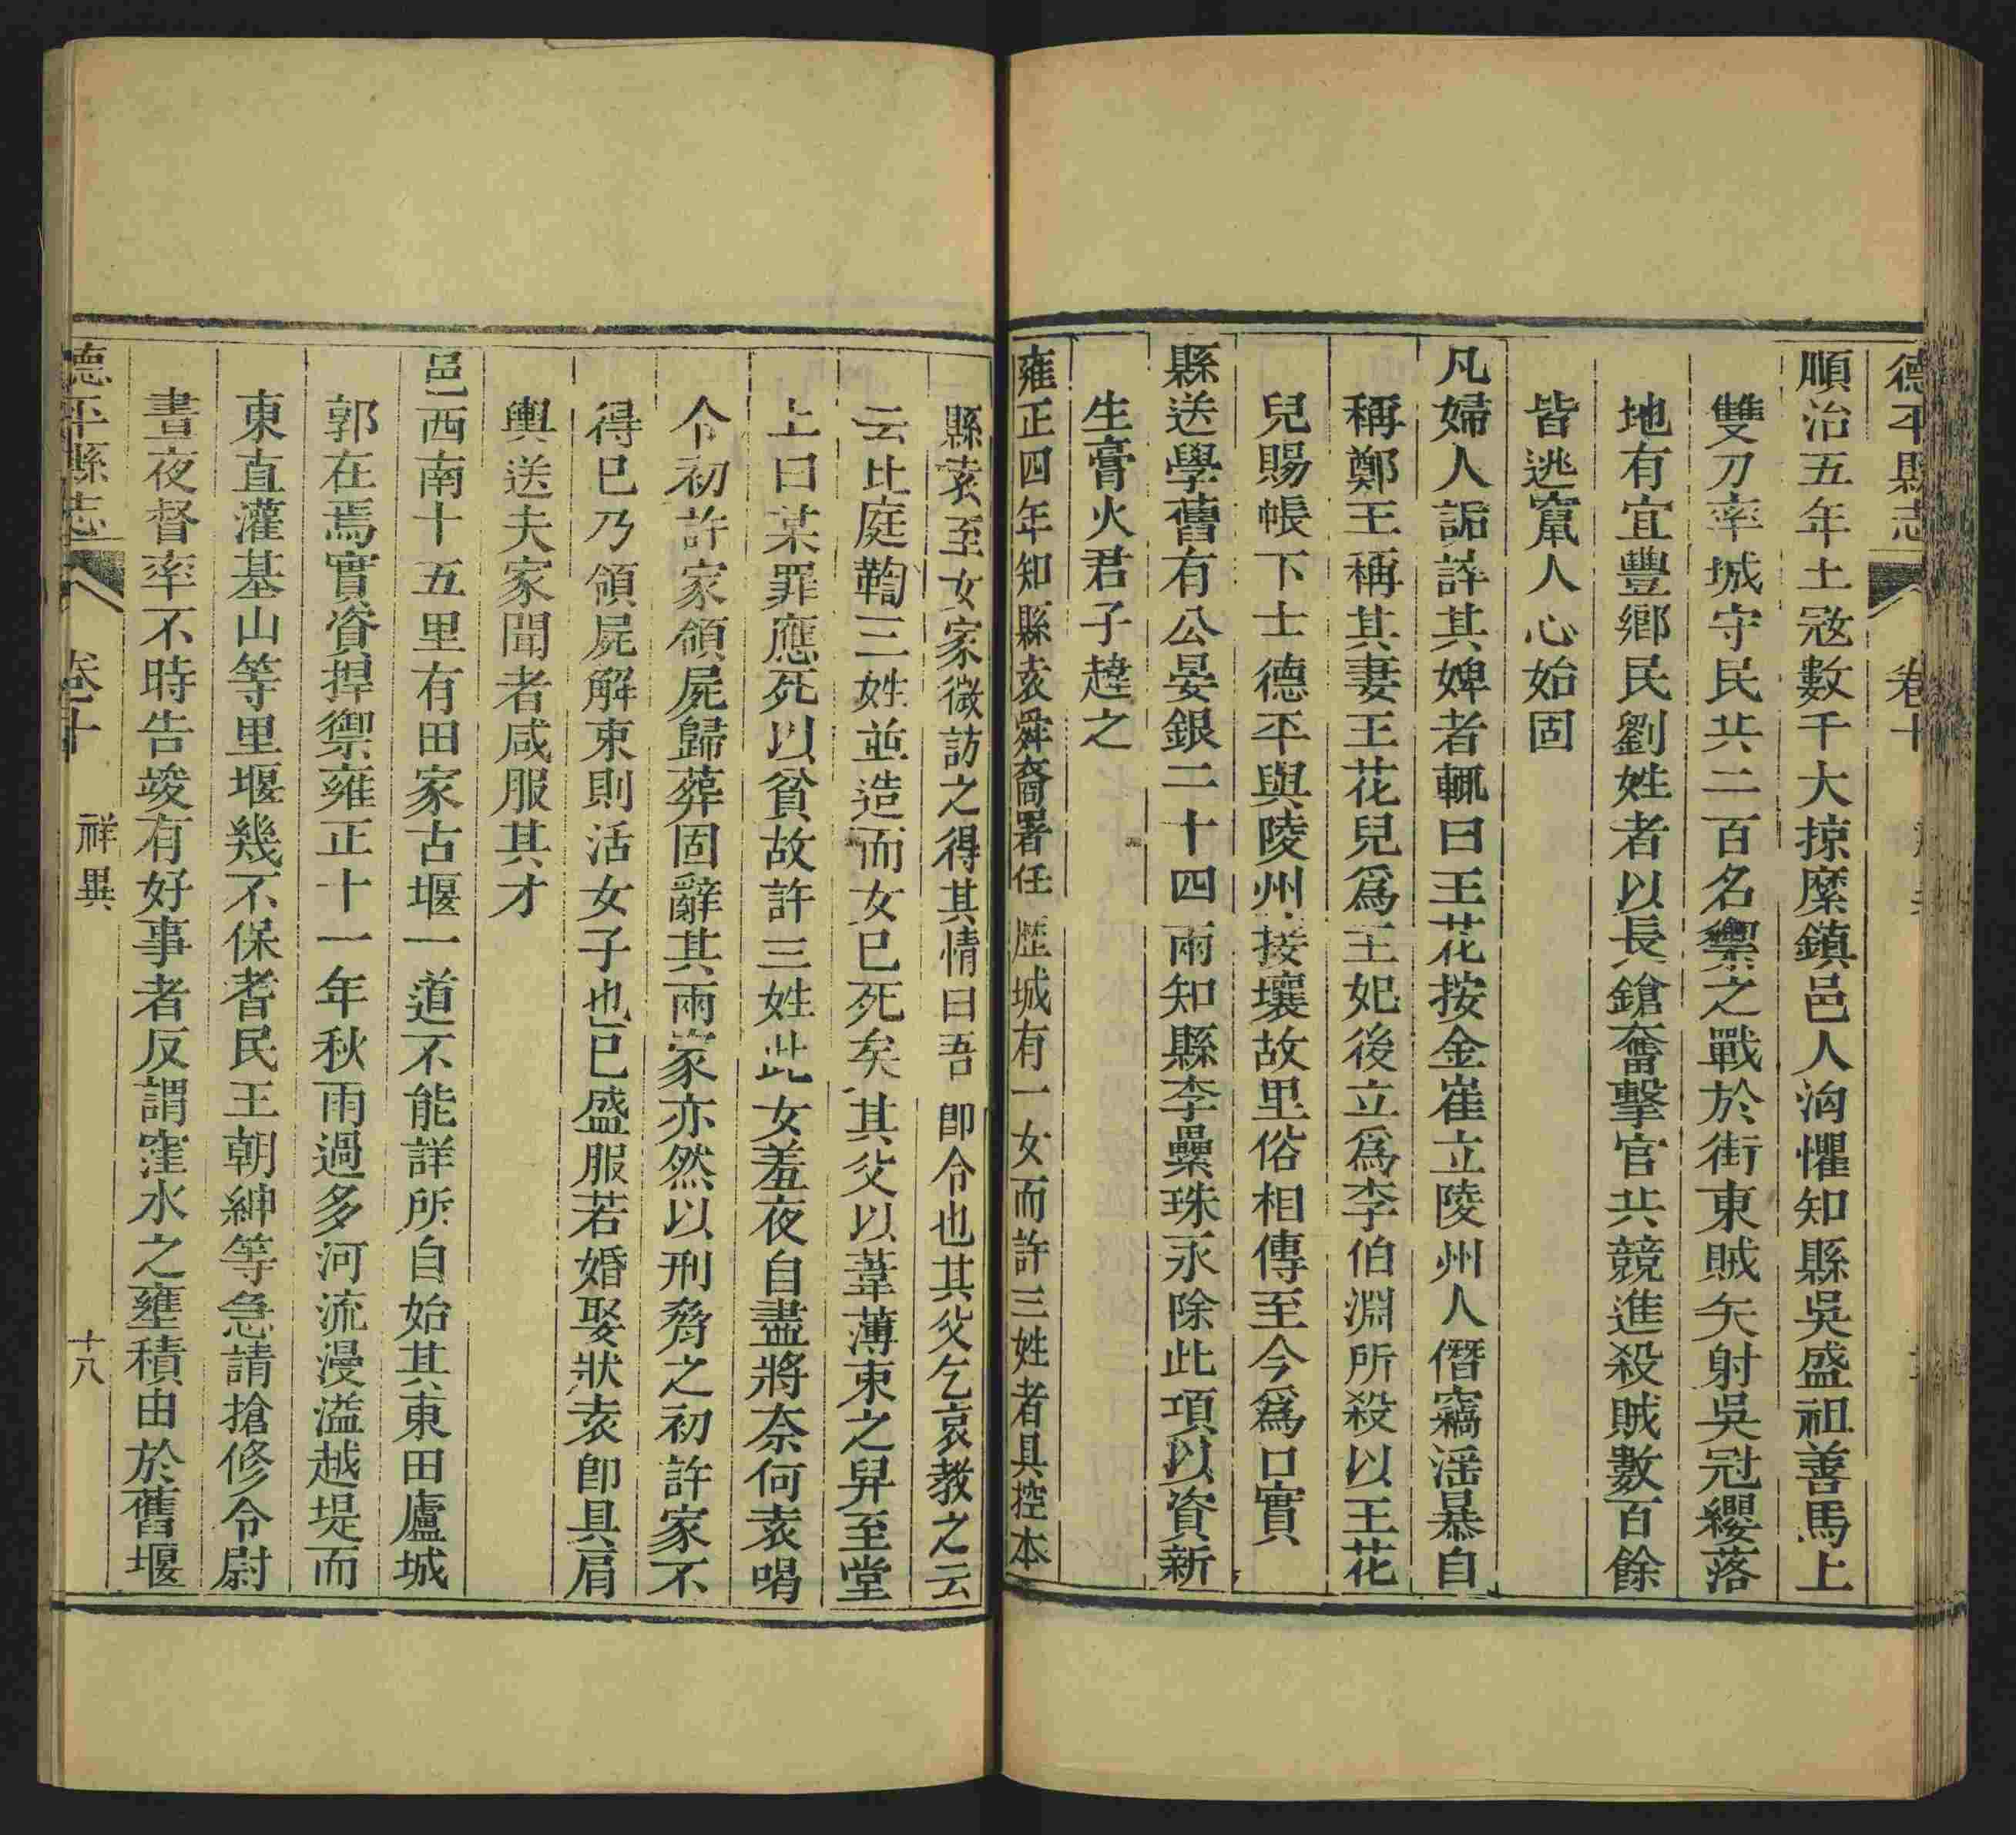 德平縣志 卷十
順治五年土寇數千大掠糜鎮邑人洶懼知縣吳盛祖善馬上
雙刀率城守民兵二百名禦之戰於街東賊矢射吳冠纓落
地有宜豐鄉民劉姓者以長鎗奮擊官兵競進殺賊數百餘
皆逃竄人心始固
凡婦人詬誶其婢者輒曰王花按金崔立陵州人僭竊滛暴自
稱鄭王稱其妻王花兒爲王妃後立爲李伯淵所殺以王花
兒賜帳下士德平與陵州接壤故里俗相傳至今爲口實
縣送學舊有公晏銀二十四兩知縣李纍珠永除此項以資新
生膏火君子韙之
雍正四年知縣袁舜裔署任歷城有一女而許三姓者具控本
縣袁至女家微訪之得其情曰吾卽令也其父乞哀敎之云
云比庭鞫三姓並造而女已死矣其父以葦薄束之舁至堂
上曰某罪應死以貧故許三姓此女羞夜自盡將奈何袁喝
令初許家領屍歸葬固辭其兩家亦然以刑脅之初許家不
得已乃領屍解束則活女子也已盛服若婚娶狀袁卽具肩
輿送夫家聞者咸服其才
邑西南十五里有田家古堰一道不能詳所自始其東田盧城
郭在焉實資捍禦雍正十一年秋雨過多河流漫溢越堤而
東直灌基山等里堰幾不保耆民王朝紳等急請搶修令尉
晝夜督率不時告竣有好事者反謂窪水之壅積由於舊堰
德平縣志 卷十 祥異 十八